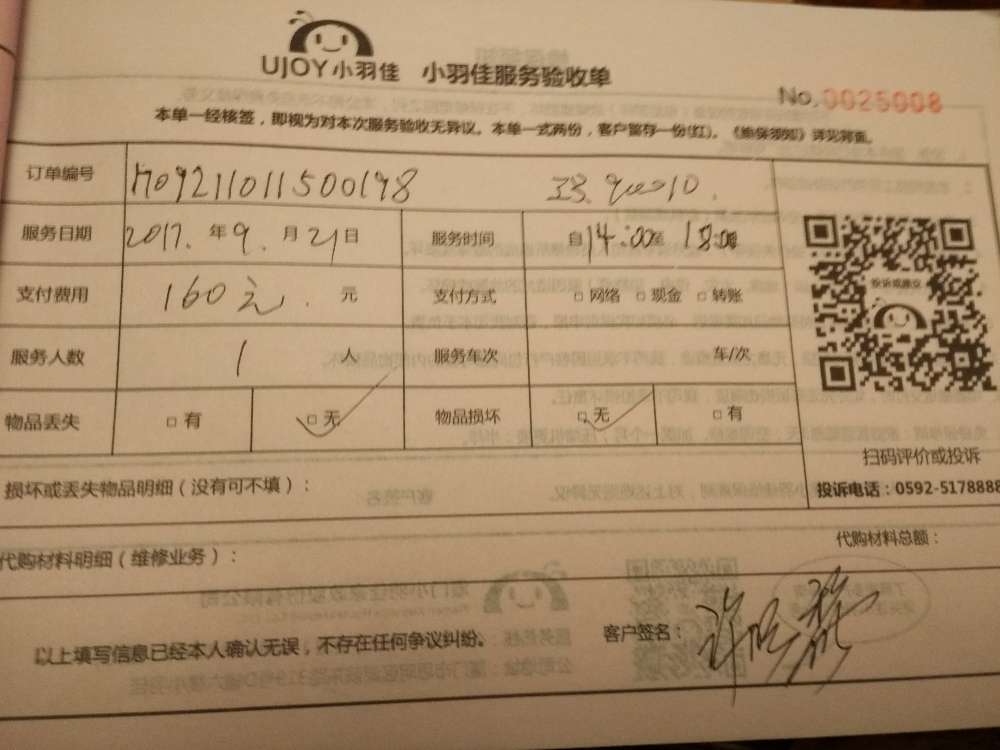 UJOY小羽佳 小羽佳服务验收单
No.0025008
本单一经核签，即视为对本次服务验收无异议。本单一式两份，客户留存一份(红)。《维保须知》详见背面。
订单编号
服务日期 2017. 年 9. 月 21 日 服务时间 自 14:00 至 18:00
支付费用 160元. 元 支付方式 □ 网络 □ 现金 □ 转账
服务人数 1 人 服务车次 车/次
物品丢失 □ 有 □ 无 物品损坏 □ 无 □ 有
投诉或建议
扫码评价或投诉
投诉电话：0592-5178888
损坏或丢失物品明细（没有可不填）：
代购材料明细（维修业务）： 代购材料总额：
以上填写信息已经本人确认无误，不存在任何争议纠纷。 客户签名：